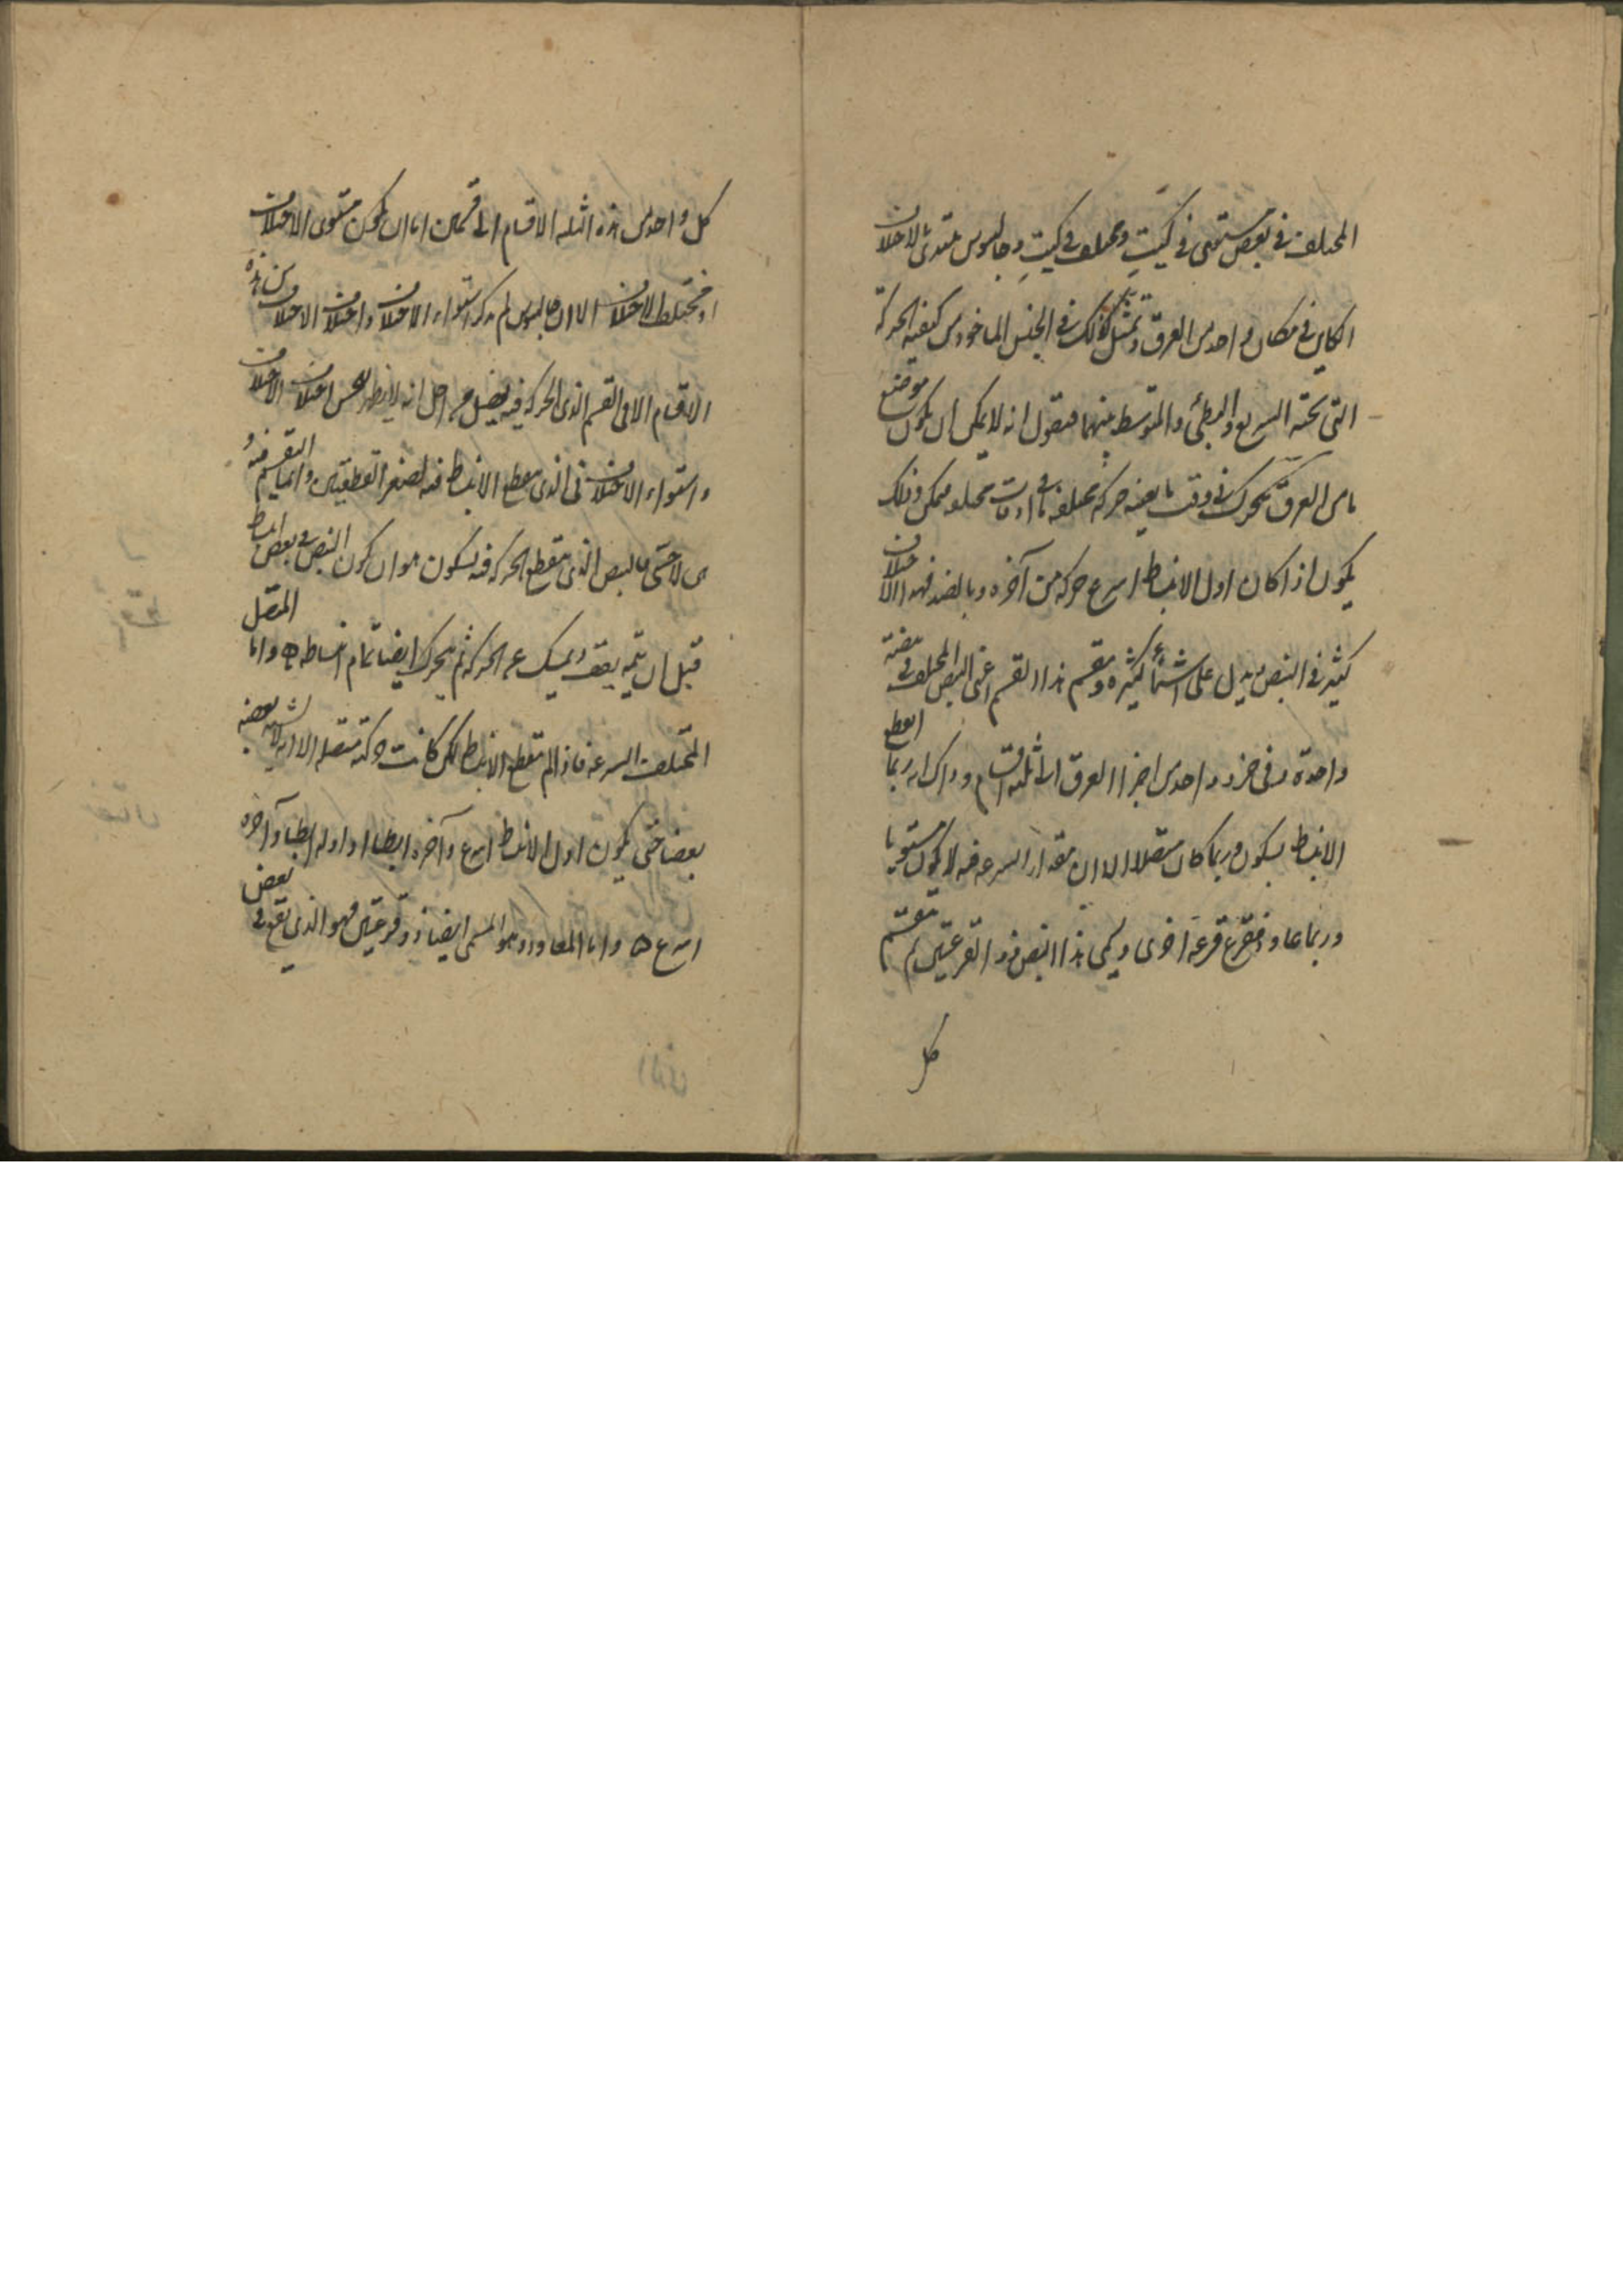 المختلف في بعض يسمى في كيت ومختلف في كيت وجالينوس يبتدئ بالاختلاف
الكاين في مكان واحد من العرق وتمثل ذلك في الجنس الماخوذ من كيفية الحركة
التي تحته السريع والبطئ والمتوسط بينهما فنقول انه لا يمكن ان يكون موضع
ما من العرق يتحرك في وقت ما بعينه حركة مختلفة فاما في اوقات مختلفة فممكن وذلك
يكون اذا كان اول الانبساط اسرع حركة من آخره وبالضد فهذا الاختلاف
كثير في النبض ويدل على اشياء كثيرة وينقسم هذا القسم اعني النبض المختلف في نبضة
واحدة وفي جزء واحد من اجزاء العرق الى ثلثة اقسام وذاك انه ربما انقطع
الانبساط بسكون وربما كان متصلا الا ان مقدار السرعة فيه لا يكون مستويا
وربما عاود فقرع قرعة اخرى ويسمى هذا النبض ذو القرعتين ثم ينقسم
كل
كل واحد من هذه الثلثة الاقسام الى قسمين اما ان يكون مستوى الاختلاف
او مختلط الاختلاف الا ان جالينوس لم يذكر استواء الاختلاف واختلاف الاختلاف من هذه
الاقسام الا في القسم الذي الحركة فيه يفصل من اجل انه لا يظهر للحس اختلاف الاختلاف
واستواء الاختلاف في الذي ينقطع الانبساط فيه لصغر القطعتين وانما ينقسم
النبض الذي ينقطع الحركة فيه بسكون هو ان يكون النبض في بعض انبساطه
قبل ان يتمه يقف ويمسك عن الحركة ثم يتحرك ايضا تمام انبساطه واما المتصل
المختلف السرعة فاذا لم ينقطع الانبساط لكن كانت حركته متصلة الا انه لا يشبه بعضه
بعضا حتى يكون اول الانبساط اسرع وآخره ابطا او اوله ابطا وآخره
اسرع واما المعاود وهو المسمى ايضا ذو قرعتين فهو الذي يقع في بعض